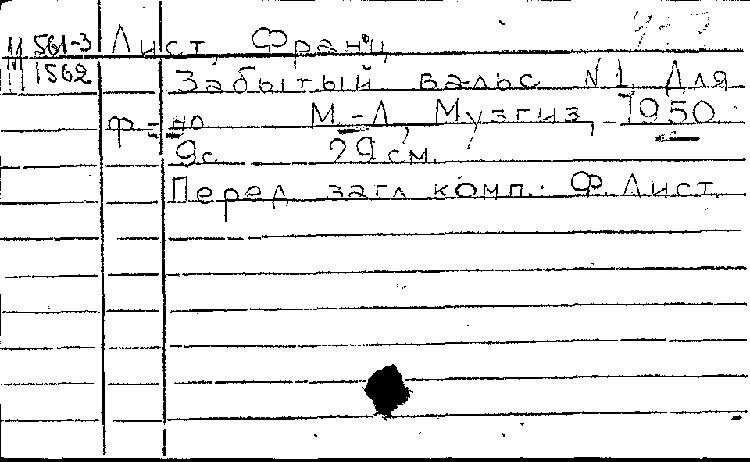 11 561-3 Лист, Франц
11 1562 Забытый вальс N1. Для
ф-но М.-Л., Музгиз, 1950.
9с. 29см.
Перед загл. комп.: Ф. Лист.